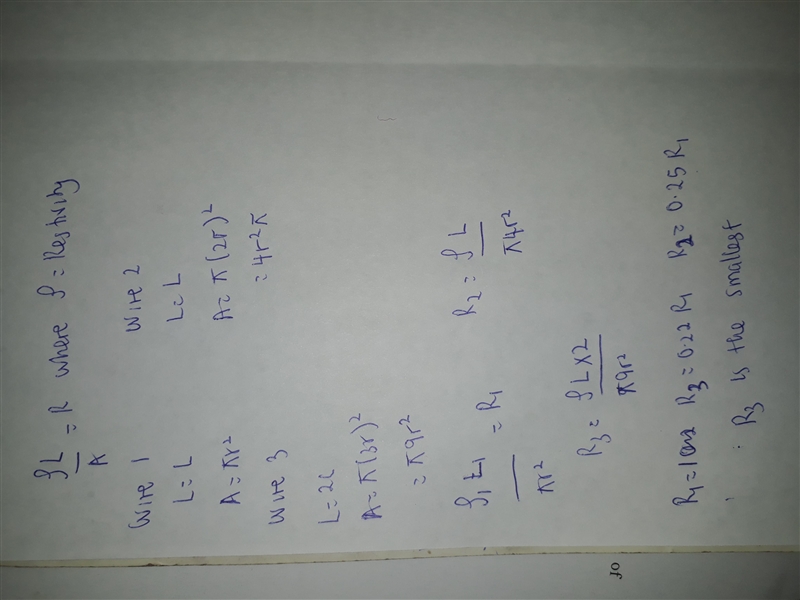 ρL/A = R where ρ = Restivity
Wire 1 Wire 2
L = L L = L
A = πr² A = π(2r)²
= 4r²π
Wire 3
L = 2L
A = π(3r)²
= π9r²
ρ₁L₁/πr² = R₁ R₂ = ρL/π4r²
R₃ = ρL×2/π9r²
R₁ = 1 R₃ = 0.22R₁ R₂ = 0.25R₁
∴ R₃ is the smallest
of